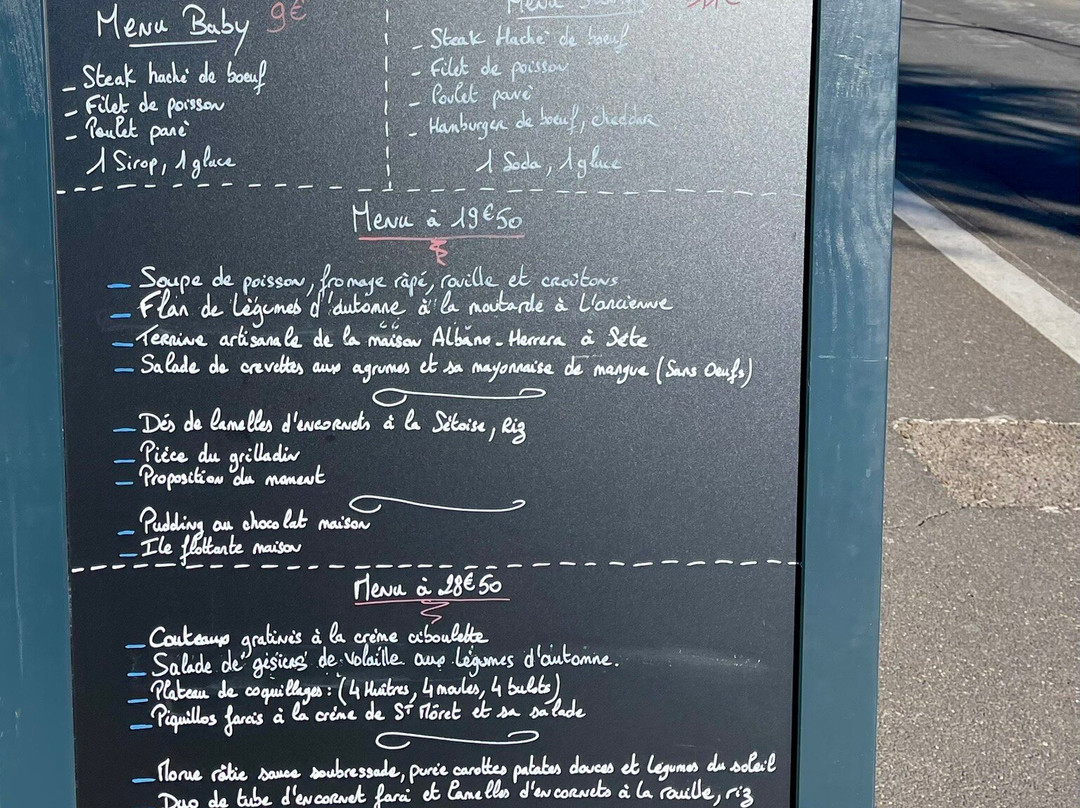 Menu Baby 9€
- Steak haché de boeuf
- Filet de poisson
- Poulet pané
1 Sirop, 1 glace
Menu
- Steak Haché de boeuf
- Filet de poisson
- Poulet pané
- Hamburger de boeuf, cheddar
1 Soda, 1 glace
Menu à 19€50
- Soupe de poisson, fromage râpé, rouille et croûtons
- Flan de Légumes d'automne à la moutarde à L'ancienne
- Terrine artisanale de la maison Albano-Herrera à Sète
- Salade de crevettes aux agrumes et sa mayonnaise de mangue (Sans Oeufs)
- Dés de lamelles d'encornets à la Sétoise, Riz
- Pièce du grilladin
- Proposition du moment
- Pudding au chocolat maison
- Ile flottante maison
Menu à 28€50
- Couteaux gratinés à la crème ciboulette
- Salade de gésiers de volaille aux légumes d'automne.
- Plateau de coquillages : (4 Huîtres, 4 moules, 4 bulots)
- Piquillos farcis à la crème de St Môret et sa salade
- Morue rôtie sauce soubressade, purée carottes patates douces et légumes du soleil
Duo de tube d'encornet farci et lamelles d'encornets à la rouille, riz